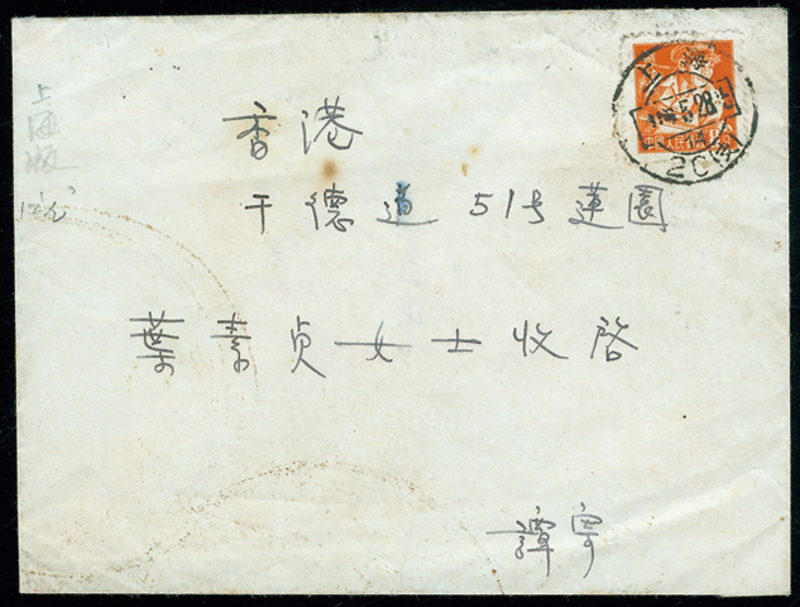 香港
干德道 51号蓮園
葉素貞女士收啓
譚寄
上海版
上海
5.28
20
中国人民邮政